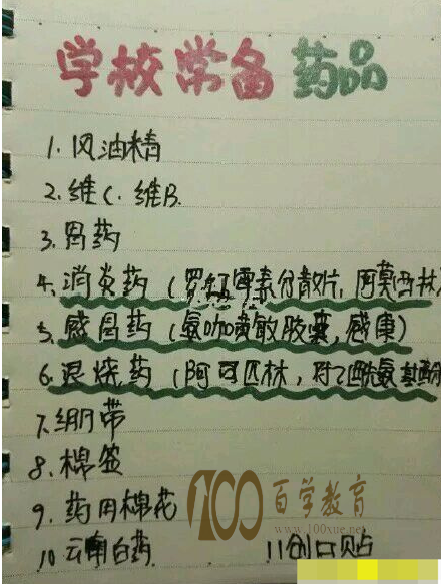 学校常备药品
1. 风油精
2. 维C. 维B.
3. 胃药
4. 消炎药 (罗红霉素分散片, 阿莫西林
5. 感冒药 (氨咖黄敏胶囊, 感康)
6. 退烧药 (阿司匹林, 对乙酰氨基酚
7. 绷带
8. 棉签
9. 药用棉花
10 云南白药 11 创口贴
100 百学教育
www.100xue.net